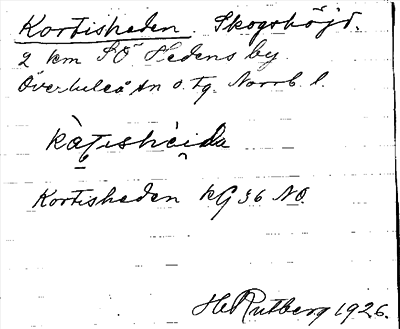 Kortisheden Skogshöjd.
2 km SÖ Hedens by
Överluleå sn o. tg. Norrb. l.
Kortisheden kG 36 NO.
H. Rutberg 1926.